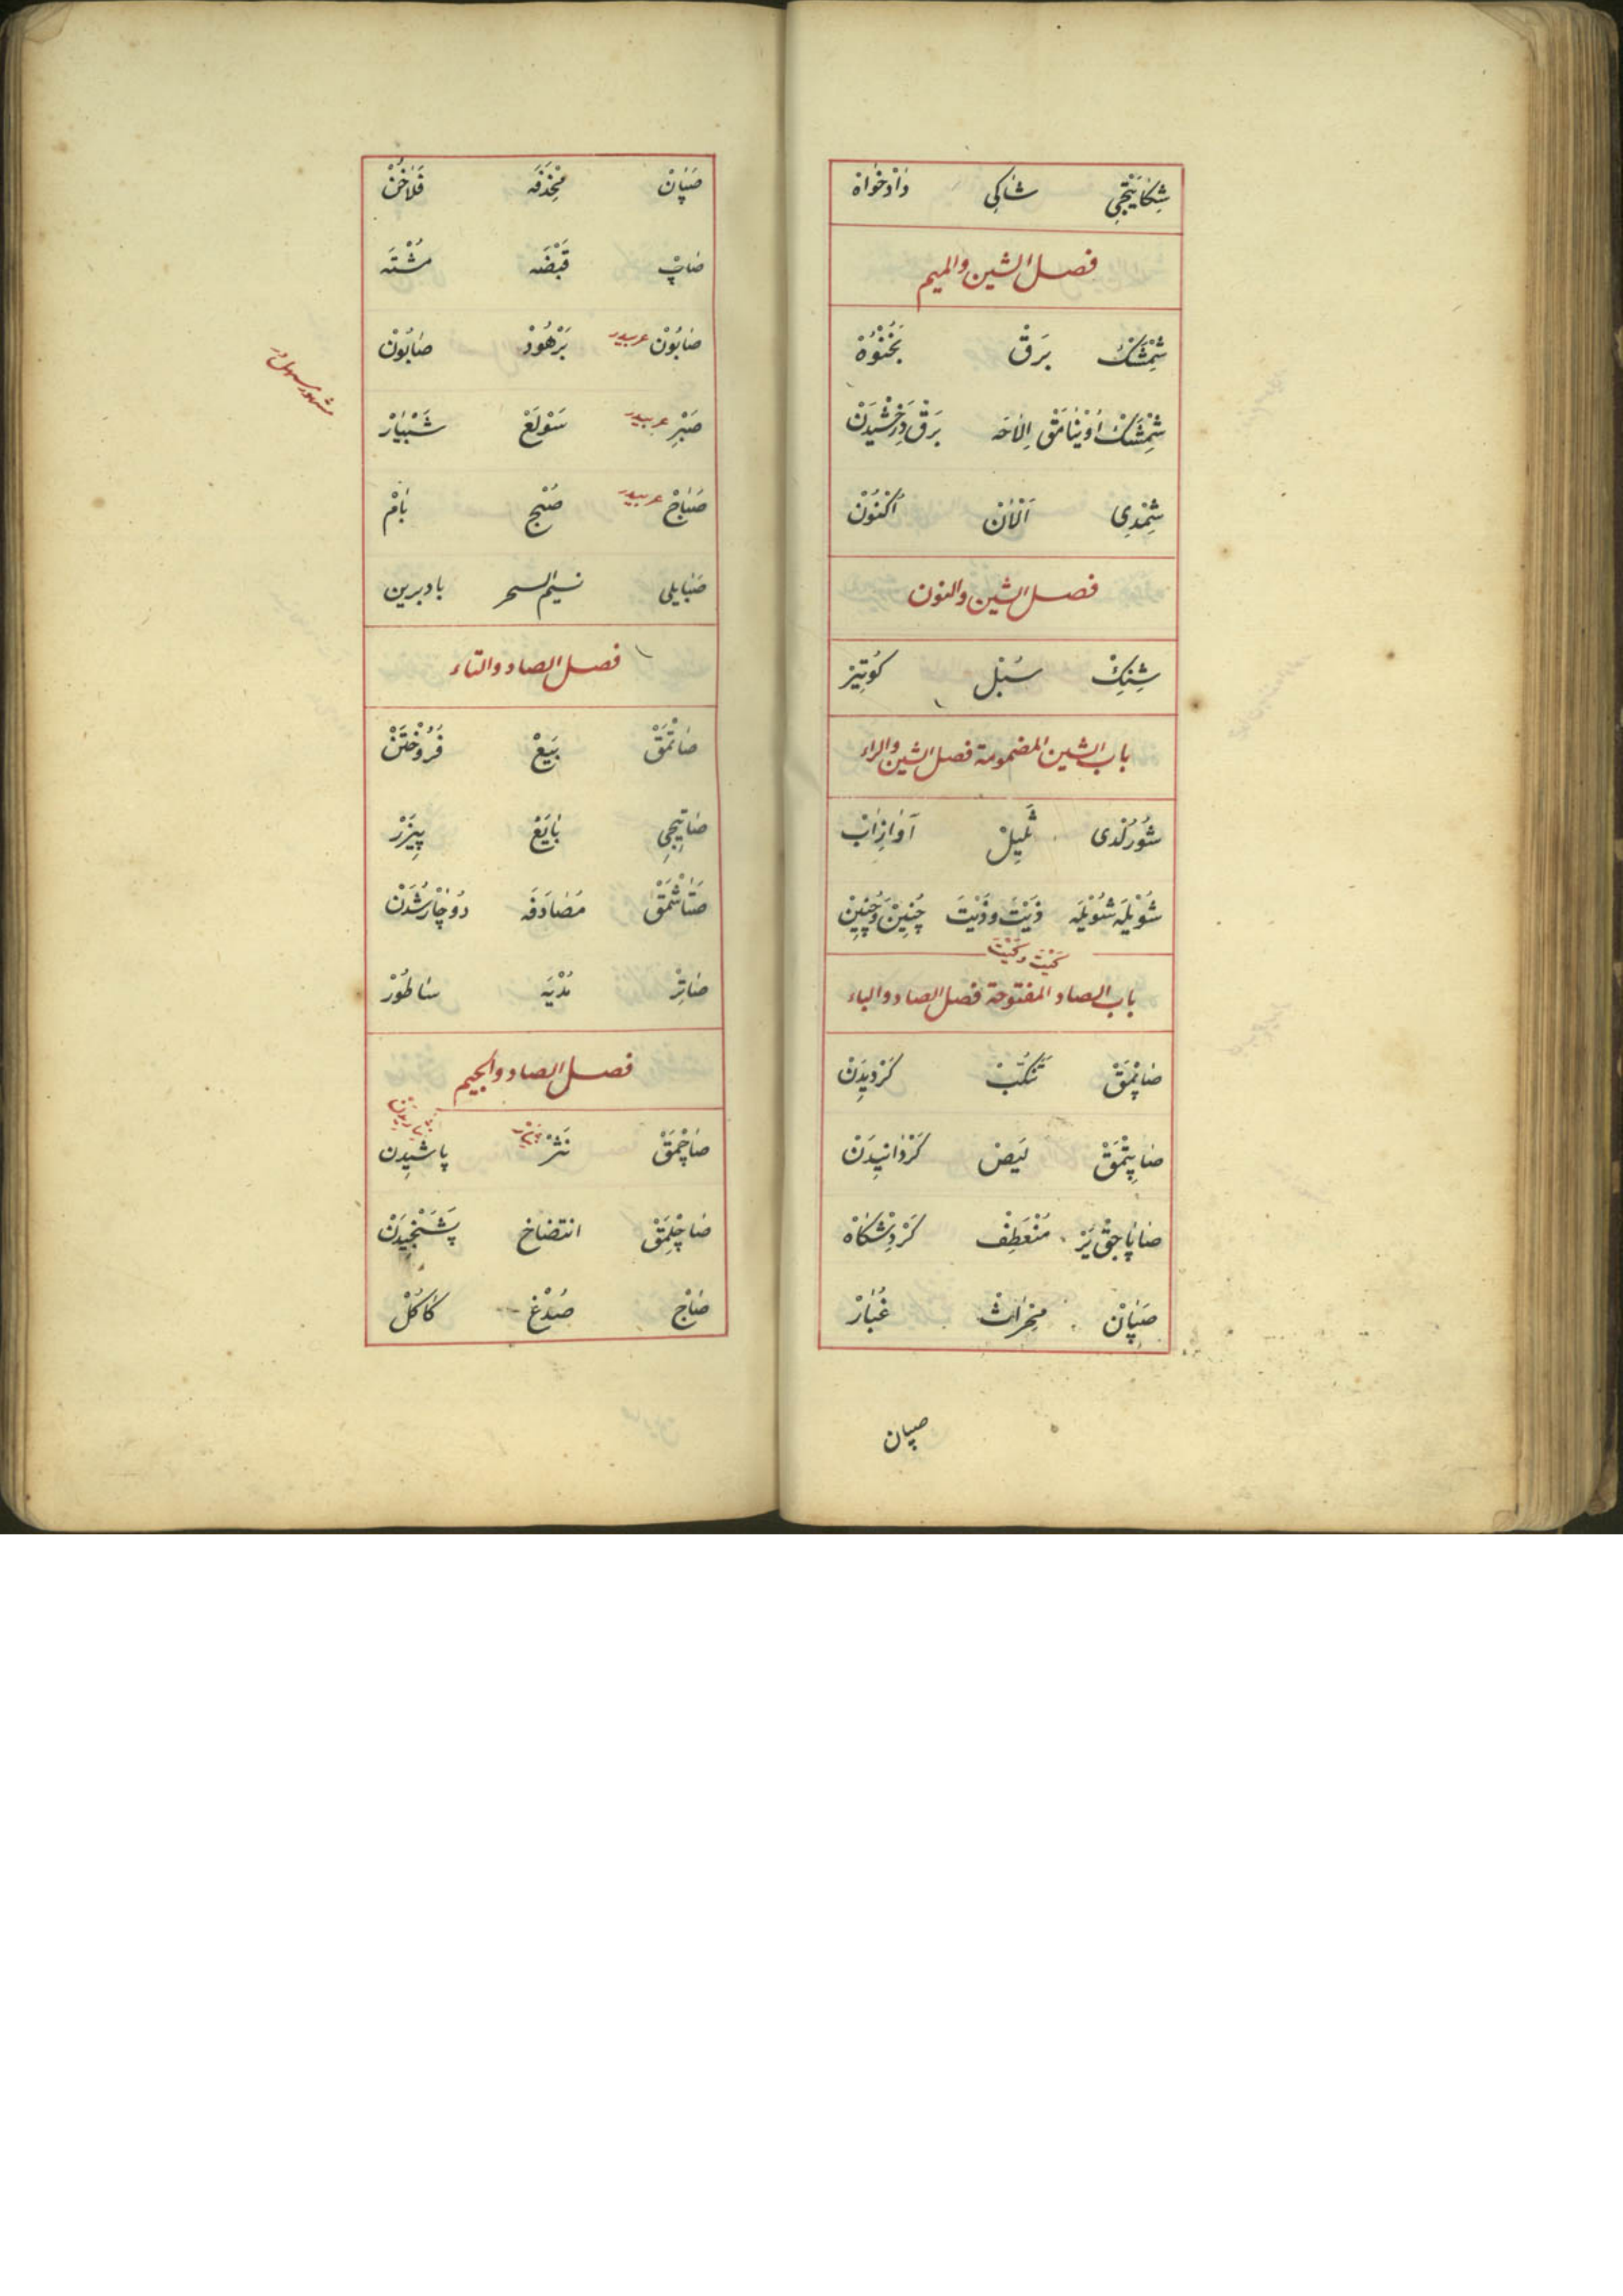 شِكَايَتْجِي شَاكِي دَادْخَوَاهْ
فصل الشين والميم
شِمْشَكْ بَرَق بُخْنُوَهْ
شِمْشَكْ اُوْيْنَامَقْ اِلَاحَه بَرَقْ دَرَخْشِيدَنْ
شِمْدِي اَلْآنْ اَكْنُونْ
فصل الشين والنون
شِنِكْ سُنْبُل
باب الشين المضمومة فصل الشين والراء
شُورُلْدِى ثَمِيلْ آوَازِ آبْ
شُوْيْلَه شُوْيْلَه ذَيْتَ وذَيْتَ چُنِينْ وچُنِينْ
كَيْتَ وكَيْتَ
باب الصاد المفتوحة فصل الصاد والباء
صَاپْمَقْ تَنَكُّبْ كَرْدِيدَنْ
صَاپِتْمَقْ لَيَصْ كَرْدَانِيدَنْ
صَاپَاجَقْ يَرْ مُنْعَطِفْ كَرْدِشْكَاهْ
صَپَانْ مِحْرَاثْ غُبَازْ
صپان
صَپَانْ مِخْذَفَه فَلَاخُنْ
صَاپْ قَبْضَه مُشْتَه
صَابُونْ عربيدر بَرْهُودْ صَابُونْ
صَبْرِ عربيدر سَوْلَعْ شَبْيَارْ
صَبَاحْ عربيدر صُبْح بَامْ
صَبَايلى نسيم السحر باد برين
فصل الصاد والتاء
صَاتْمَقْ بَيعْ فُرُوخْتَنْ
صَاتِيجِي بَايَعْ
صَتَاشْمَقْ مُصَادَفَه دُوچَارْشُدَنْ
صَاتِرْ مُدْيَه سَاطُورْ
فصل الصاد والجيم
صَاچْمَقْ نَثْرْ پاشيدن
صَاچِلْمَقْ انتضاخ پَشَنْجِيدَنْ
صَاچْ صُدْغ كَاكُلْ